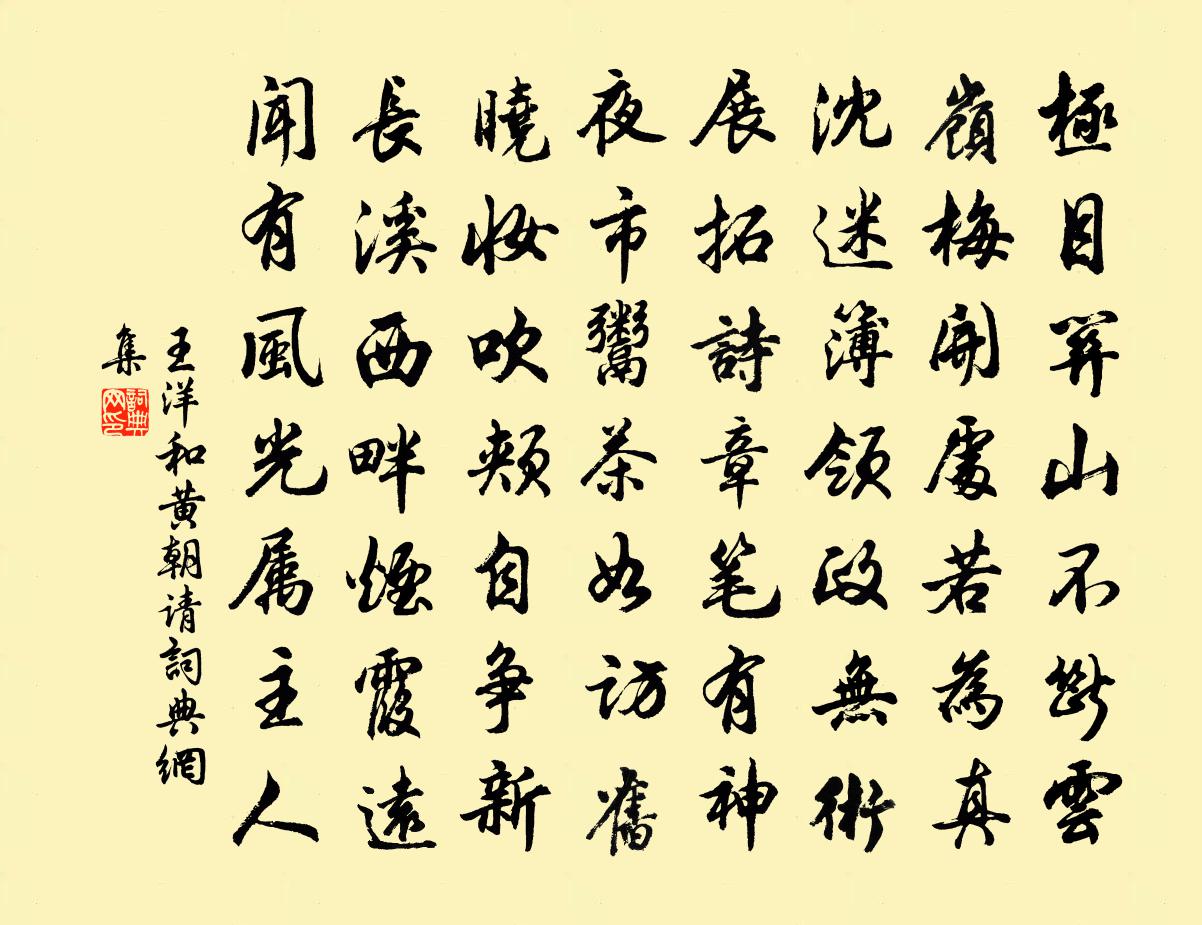 極目羣山不斷雲
嶺梅開處若為真
沈迷簿領政無術
展拓詩章笔有神
夜市鬻茶如訪舊
曉妝吹頰自争新
長溪西畔煙霞遠
聞有風光属主人
王洋和黄朝请詞典網
集
詞典
网印